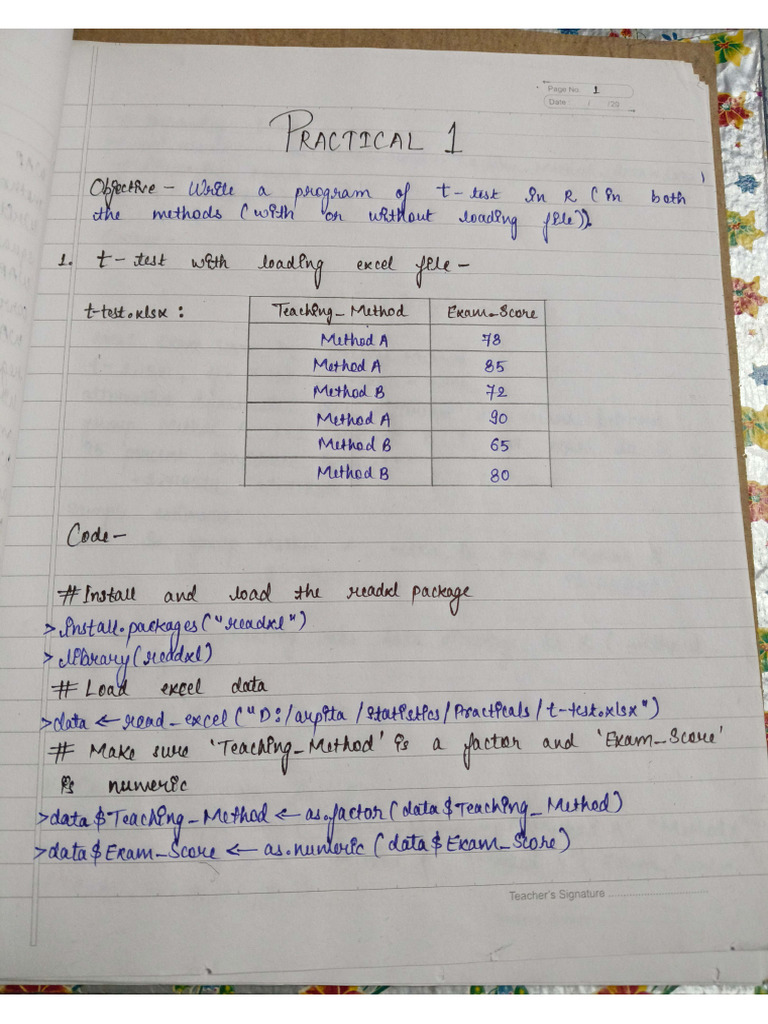 Page No. 1
Date : / /20
PRACTICAL 1
Objective - Write a program of t-test in R (in both
the methods (with or without loading file)).
1. t-test with loading excel file -
t-test.xlsx :
Teaching_Method Exam_Score
Method A 78
Method A 85
Method B 72
Method A 90
Method B 65
Method B 80
Code -
# Install and load the readxl package
> install.packages("readxl")
> library(readxl)
# Load excel data
> data ← read_excel("D:/arpita/statistics/Practicals/t-test.xlsx")
# Make sure 'Teaching_Method' is a factor and 'Exam_Score'
is numeric
> data$Teaching_Method ← as.factor(data$Teaching_Method)
> data$Exam_Score ← as.numeric(data$Exam_Score)
Teacher's Signature